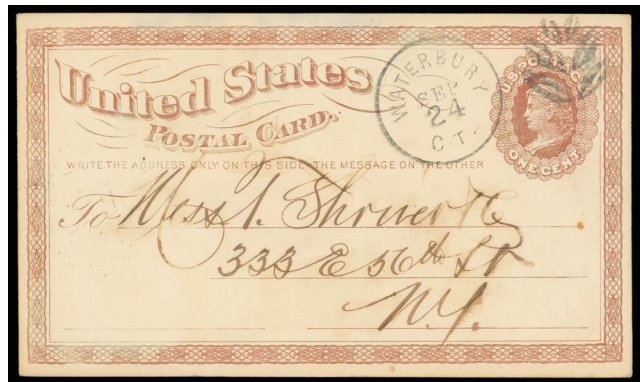 United States
POSTAL CARD.
WRITE THE ADDRESS ONLY ON THIS SIDE-THE MESSAGE ON THE OTHER
WATERBURY
SEP
24
CT.
U.S. POSTAGE
ONE CENT
To Mess.
333 E 56th St
N.Y.